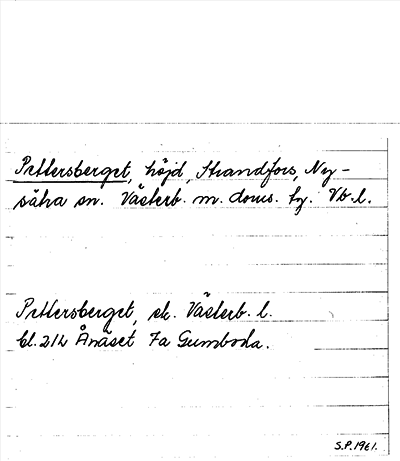 Pettersberget, höjd, Strandfors, Ny-
sätra sn. Västerb. m. doms. fg. Vb. l.
Pettersberget, sk. Västerb. l.
bl. 212 Ånäset 7a Gumboda.
S.P. 1961.